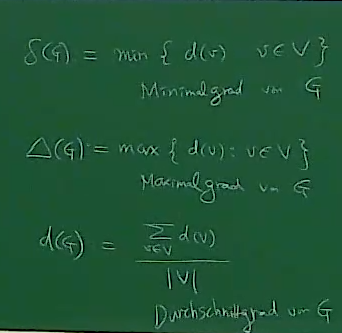 δ(G) = min { d(v) v∈V }
Minimalgrad von G
Δ(G) := max { d(v) : v∈V }
Maximalgrad von G
d(G) = ∑ d(v)
v∈V
|V|
Durchschnittsgrad von G